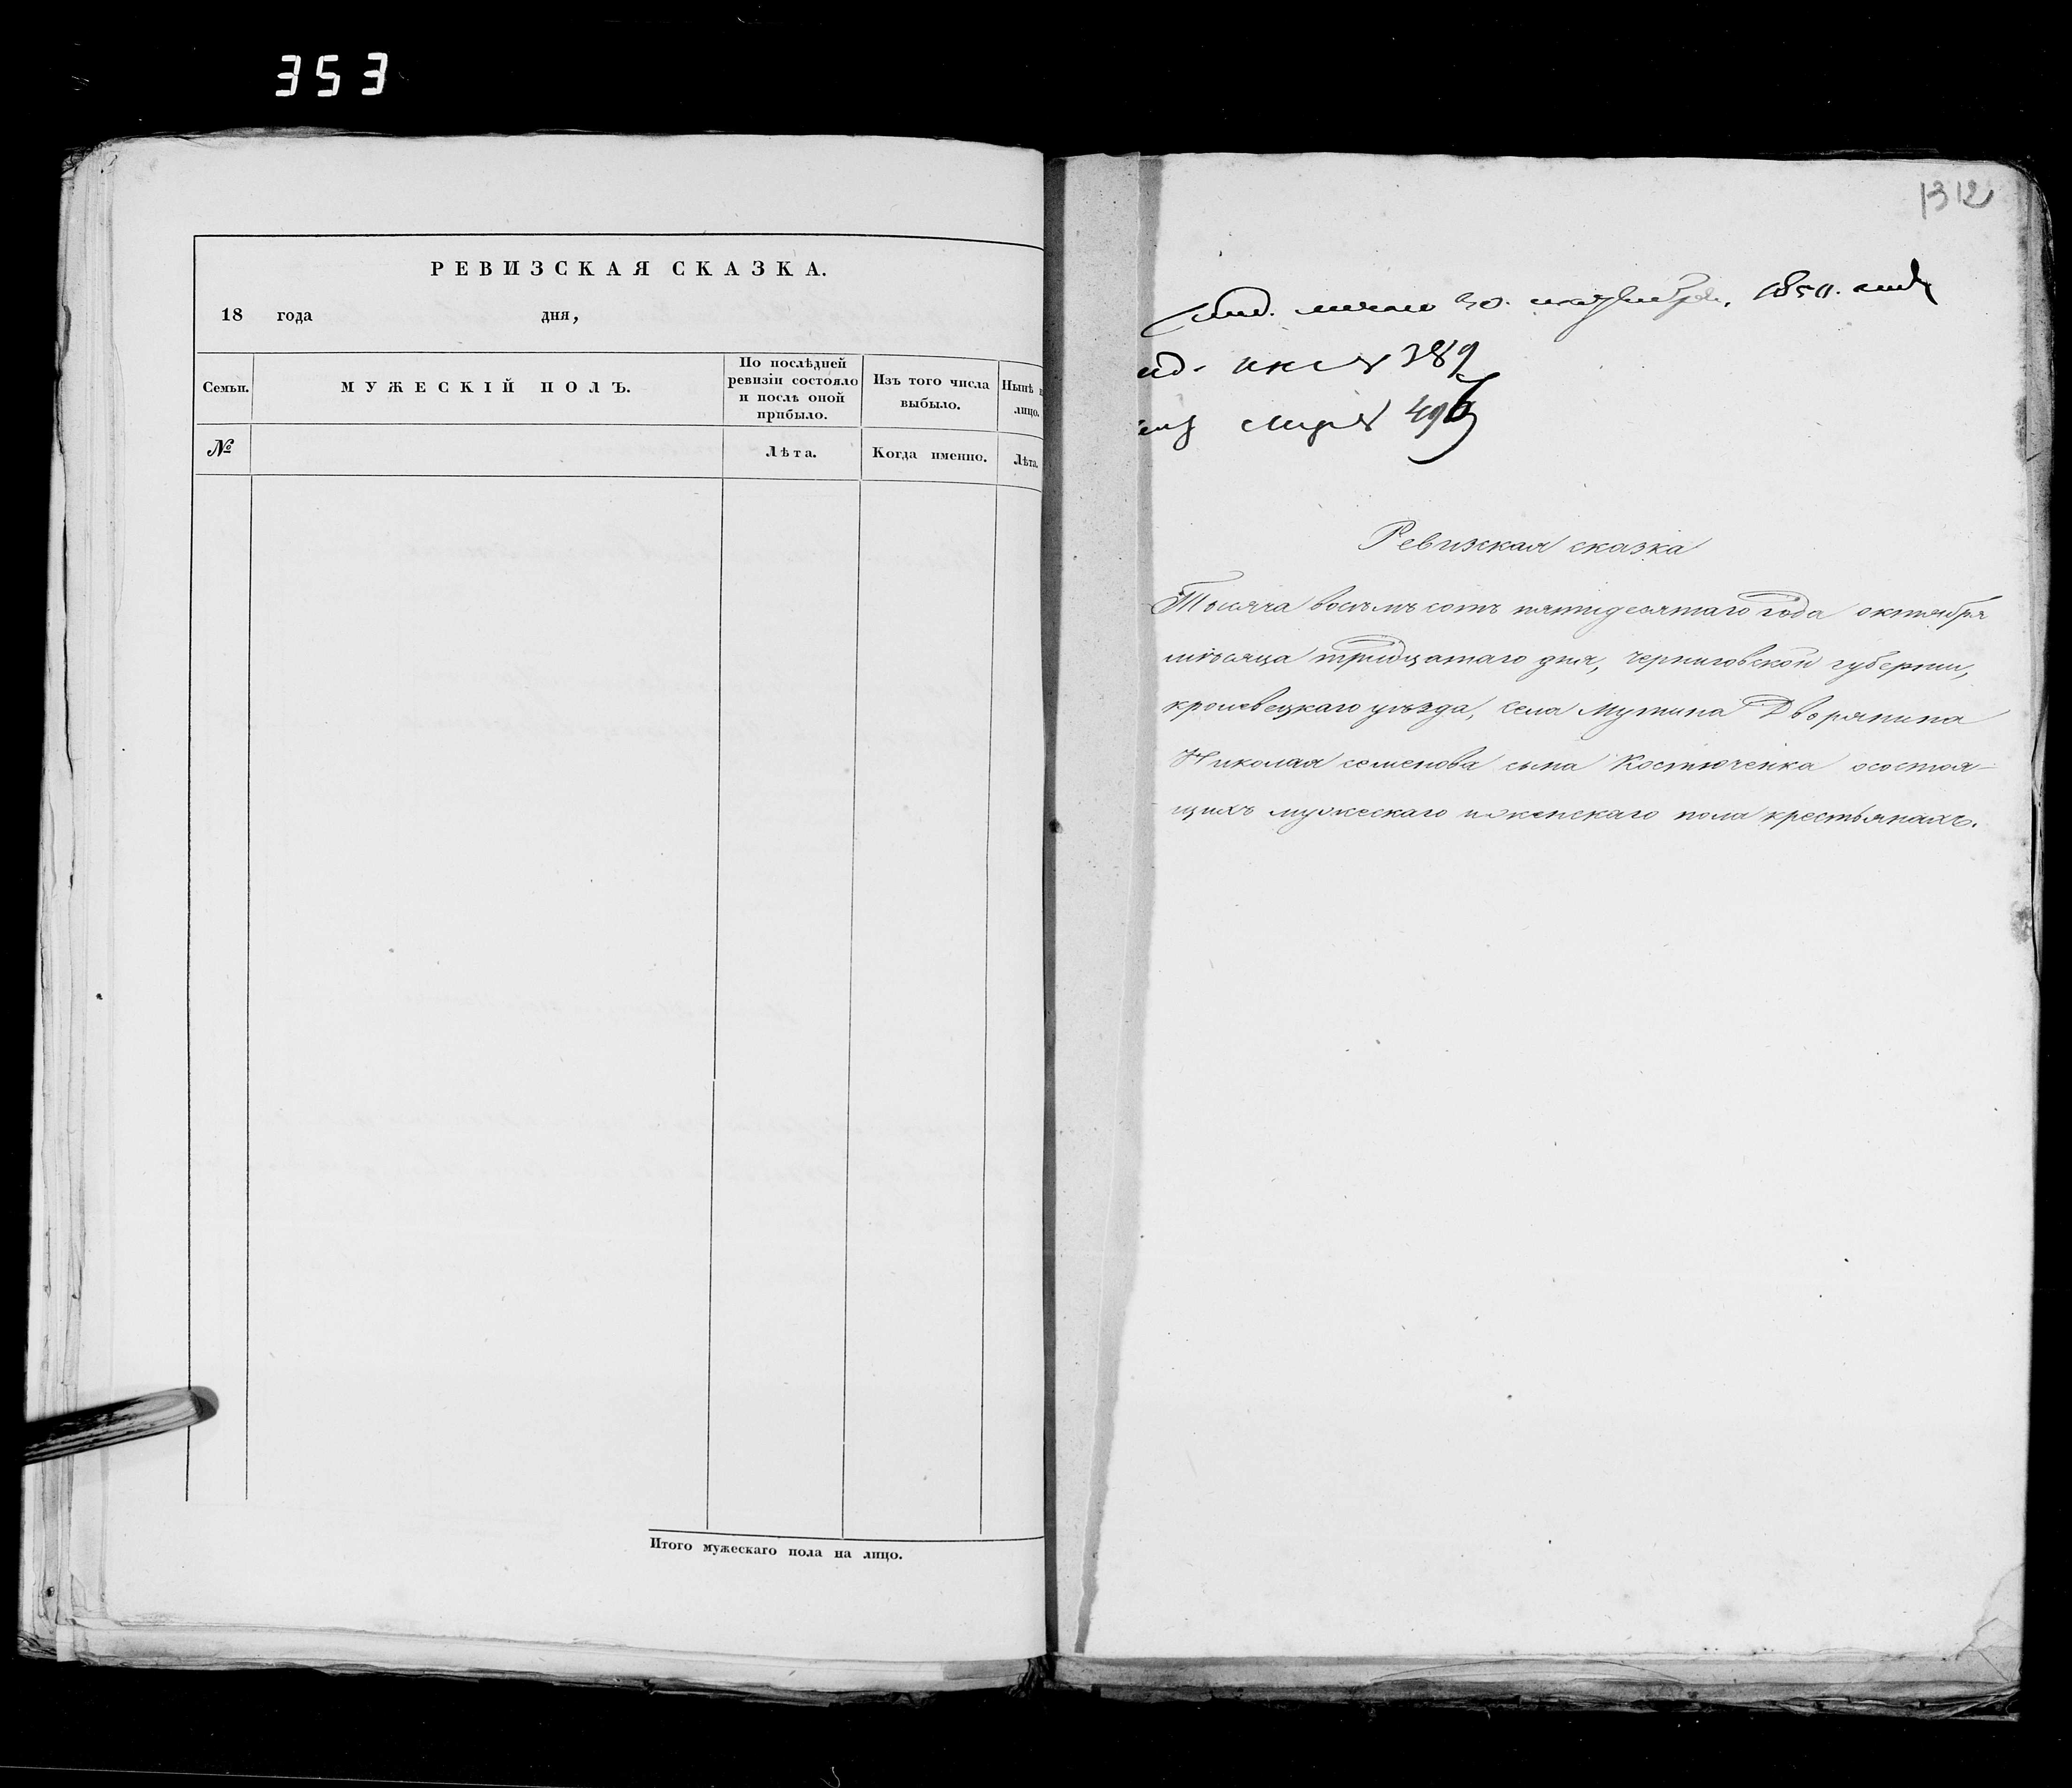 353
РЕВИЗСКАЯ СКАЗКА.
18 года дня,
Семьи.
МУЖЕСКІЙ ПОЛЪ.
По послѣдней
ревизіи состояло
и послѣ оной
прибыло.
Изъ того числа
выбыло.
Нынѣ н
лицо.
№
Лѣта.
Когда именно.
Лѣта.
Итого мужескаго пола на лицо.
1312
30. 1850.
389
496
Ревизская сказка
Тысяча восъмъ сотъ пятидесятаго года октября
мѣсяца тридцатаго дня, черниговской губерніи,
кролевецкаго уѣзда, села Мутина Дворянина
Николая семенова сына Костюченка осостоя-
щихъ мужескаго иженскаго пола крестьянахъ.